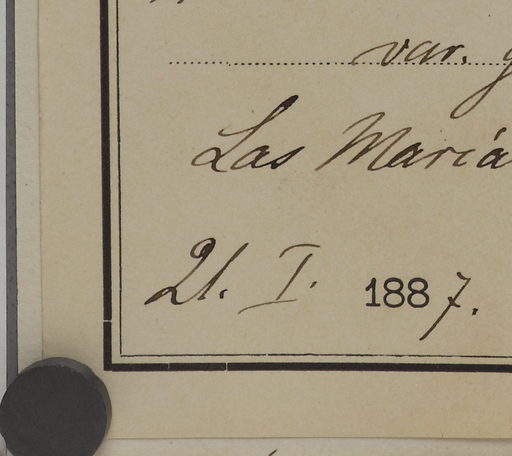 var.
Las Mariá
21. I. 1887.